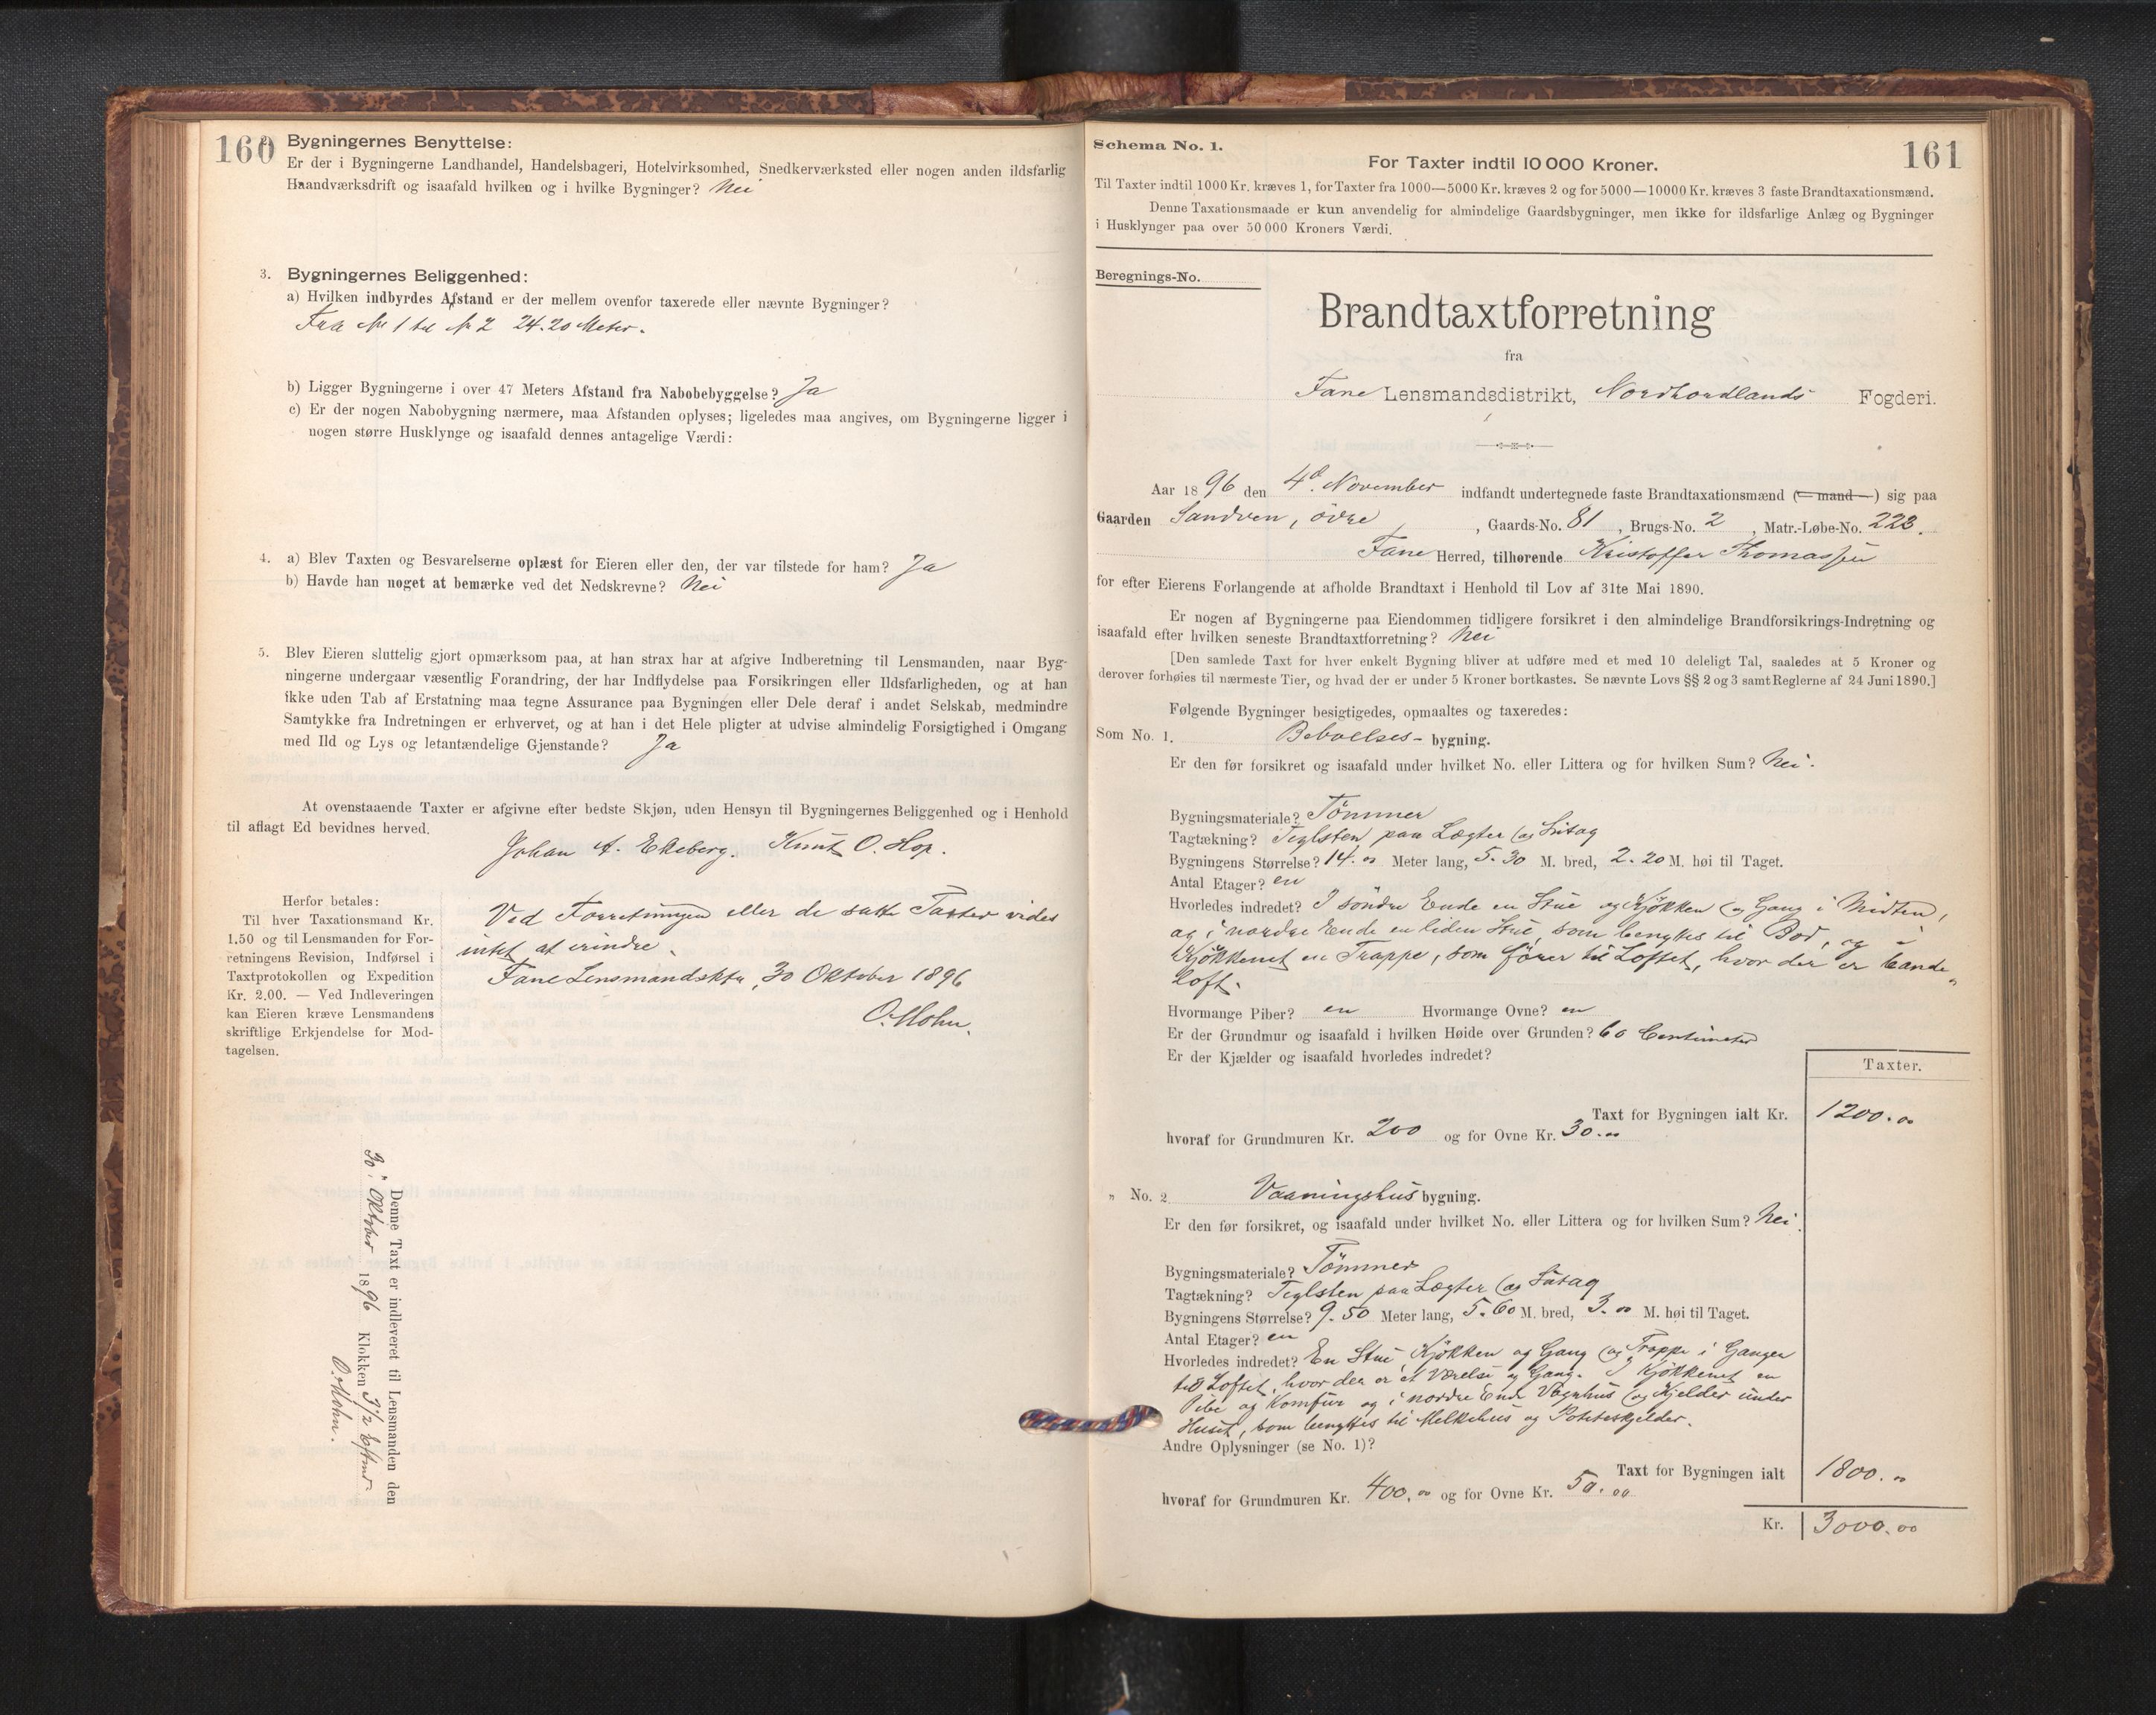 160
Bygningernes Benyttelse:
Er der i Bygningerne Landhandel, Handelsbageri, Hotelvirksomhed, Snedkerværksted eller nogen anden ildsfarlig
Haandværksdrift og isaafald hvilken og i hvilke Bygninger? Nei
3. Bygningernes Beliggenhed:
a) Hvilken indbyrdes Afstand er der mellem ovenfor taxerede eller nævnte Bygninger?
Fra No 1 til No 2 24.20 Meter.
b) Ligger Bygningerne i over 47 Meters Afstand fra Nabobebyggelse? Ja
c) Er der nogen Nabobygning nærmere, maa Afstanden oplyses; ligeledes maa angives, om Bygningerne ligger i
nogen større Husklynge og isaafald dennes antagelige Værdi:
4. a) Blev Taxten og Besvarelserne oplæst for Eieren eller den, der var tilstede for ham? Ja
b) Havde han noget at bemærke ved det Nedskrevne? Nei
5. Blev Eieren sluttelig gjort opmærksom paa, at han strax har at afgive Indberetning til Lensmanden, naar Byg-
ningerne undergaar væsentlig Forandring, der har Indflydelse paa Forsikringen eller Ildsfarligheden, og at han
ikke uden Tab af Erstatning maa tegne Assurance paa Bygningen eller Dele deraf i andet Selskab, medmindre
Samtykke fra Indretningen er erhvervet, og at han i det Hele pligter at udvise almindelig Forsigtighed i Omgang
med Ild og Lys og letantændelige Gjenstande? Ja
At ovenstaaende Taxter er afgivne efter bedste Skjøn, uden Hensyn til Bygningernes Beliggenhed og i Henhold
til aflagt Ed bevidnes herved.
Johan A. Ekeberg. Knut O. Hop.
Herfor betales:
Til hver Taxationsmand Kr.
1.50 og til Lensmanden for For-
retningens Revision, Indførsel i
Taxtprotokollen og Expedition
Kr. 2.00. — Ved Indleveringen
kan Eieren kræve Lensmandens
skriftlige Erkjendelse for Mod-
tagelsen.
Ved Forretningen eller de satte Taxter vides
intet at erindre.
Fane Lensmandsktr, 30 Oktober 1896
O. Mohn.
Denne Taxt er indleveret til Lensmanden den
30' Oktober 1896 Klokken 3 1/2 Eftmd.
O. Mohn.
Schema No. 1.
161
For Taxter indtil 10 000 Kroner.
Til Taxter indtil 1000 Kr. kræves 1, for Taxter fra 1000—5000 Kr. kræves 2 og for 5000—10000 Kr. kræves 3 faste Brandtaxationsmænd.
Denne Taxationsmaade er kun anvendelig for almindelige Gaardsbygninger, men ikke for ildsfarlige Anlæg og Bygninger
i Husklynger paa over 50 000 Kroners Værdi.
Beregnings-No.
Brandtaxtforretning
fra
Fane Lensmandsdistrikt, Nordhordlands Fogderi.
Aar 1896 den 4d. November indfandt undertegnede faste Brandtaxationsmænd (— mand —) sig paa
Gaarden Sandven, övre, Gaards-No. 81, Brugs-No. 2, Matr.-Løbe-No. 223.
Fane Herred, tilhørende Kristoffer Thomassen
for efter Eierens Forlangende at afholde Brandtaxt i Henhold til Lov af 31te Mai 1890.
Er nogen af Bygningerne paa Eiendommen tidligere forsikret i den almindelige Brandforsikrings-Indretning og
isaafald efter hvilken seneste Brandtaxtforretning? Nei
[Den samlede Taxt for hver enkelt Bygning bliver at udføre med et med 10 deleligt Tal, saaledes at 5 Kroner og
derover forhøies til nærmeste Tier, og hvad der er under 5 Kroner bortkastes. Se nævnte Lovs §§ 2 og 3 samt Reglerne af 24 Juni 1890.]
Følgende Bygninger besigtigedes, opmaaltes og taxeredes:
Som No. 1. Beboelses- bygning.
Er den før forsikret og isaafald under hvilket No. eller Littera og for hvilken Sum? Nei.
Bygningsmateriale? Tömmer
Tagtækning? Teglsten paa Lægter og Sutag
Bygningens Størrelse? 14.00 Meter lang, 5.30 M. bred, 2.20 M. høi til Taget.
Antal Etager? en
Hvorledes indredet? I söndre Ende en Stue og Kjökken og Gang i Midten,
og i nordre Ende en liden Stue, som benyttes til Bod, og i
Kjökkenet en Trappe, som förer til Loftet, hvor der er
Loft.
Hvormange Piber? en Hvormange Ovne? en
Er der Grundmur og isaafald i hvilken Høide over Grunden? 60 Centimeter
Er der Kjælder og isaafald hvorledes indredet?
Taxter.
Taxt for Bygningen ialt Kr. 1200.00
hvoraf for Grundmuren Kr. 200 og for Ovne Kr. 30.00
" No. 2 Vaaningshus bygning.
Er den før forsikret, og isaafald under hvilket No. eller Littera og for hvilken Sum? Nei.
Bygningsmateriale? Tömmer
Tagtækning? Teglsten paa Lægter og Sutag
Bygningens Størrelse? 9.50 Meter lang, 5.60 M. bred, 3.00 M. høi til Taget.
Antal Etager? en
Hvorledes indredet? En Stue Kjökken og Gang og Trappe i Gangen
til Loftet, hvor der er et Værelse og Gang. I Kjökkenet en
Pibe og Komfur og i nordre Ende Vognhus og Kjelder under
Huset, som benyttes til Melkehus og Poteteskjelder.
Andre Oplysninger (se No. 1)?
Taxt for Bygningen ialt 1800.00
hvoraf for Grundmuren Kr. 400.00 og for Ovne Kr. 50.00
Kr. 3000.00